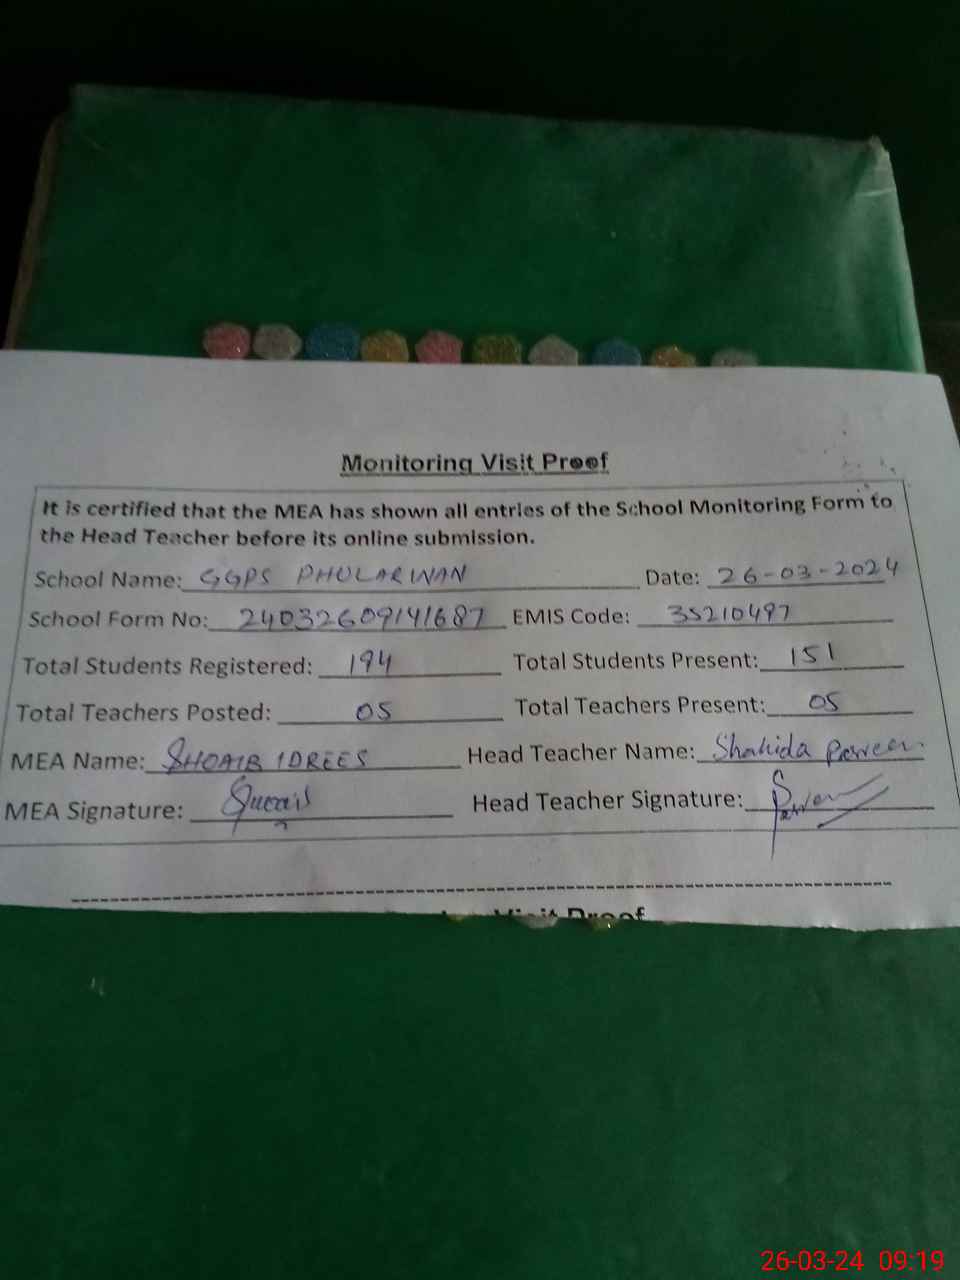 Monitoring Visit Proof
It is certified that the MEA has shown all entries of the School Monitoring Form to
the Head Teacher before its online submission.
School Name: GGPS PHULARWAN Date: 26-03-2024
School Form No: 24032609141687 EMIS Code: 35210497
Total Students Registered: 194 Total Students Present: 151
Total Teachers Posted: 05 Total Teachers Present: 05
MEA Name: SHOAIB IDREES Head Teacher Name: Shahida Parveen.
MEA Signature: Head Teacher Signature:
Visit Proof
26-03-24 09:19